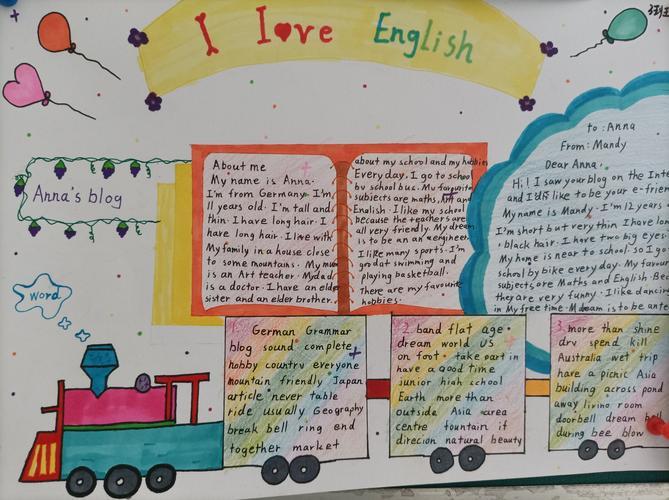 I Love English
Anna's blog
word
About me
My name is Anna.
I'm from Germany. I'm
11 years old. I'm tall and
thin. I have long hair. I
have long hair. I live with
My family in a house close
to some mountains. My mum
is an Art teacher. My dad
is a doctor. I have an elder
sister and an elder brother.
about my school and my hobbies
Every day. I go to school
by school bus. My favourite
subjects are maths, Art and
English. I like my school
because the teachers are
all very friendly. My dream
is to be an an engineer.
I like many sports. I'm
good at swimming and
playing basketball.
there are my favourite
hobbies.
to : Anna
From: Mandy
Dear Anna.
Hi! I saw your blog on the Inte
and I'd like to be your e-frien
My name is Mandy. I'm 12 years
I'm short but very thin I have lon
black hair. I have two big eyes.
My home is near to school. so I go
school by bike every day. My favour
subjects are Maths and English. Bec
they are very funny. I like dancing
in My free time. My dream is to be an
1. German Grammar
blog sound complete
hobby country everyone
mountain friendly Japan
article never table
ride usually Geography
break bell ring end
together market
2. band flat age
dream world US
on foot take part in
have a good time
junior high school
Earth more than
outside Asia area
centre fountain if
direcion natural beauty
3. more than shine
dry spend kill
Australia wet trip
have a picnic Asia
building across pond
away living room
doorbell dream bell
during bee blow